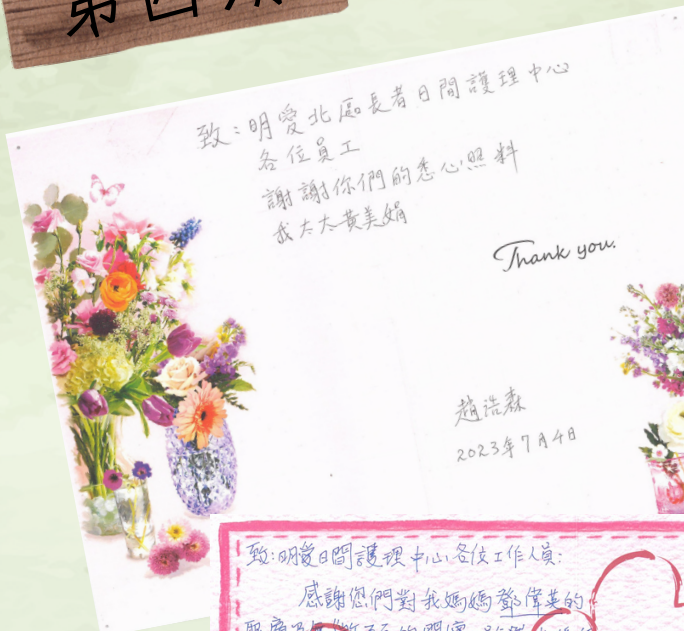 第四
致：明愛北區長者日間護理中心
各位員工
謝謝你們的悉心照料
我太太黃美娟
Thank you.
趙浩森
2023年7月4日
致:明愛日間護理中心各位工作人員:
感謝您們對我媽媽鄧偉英的